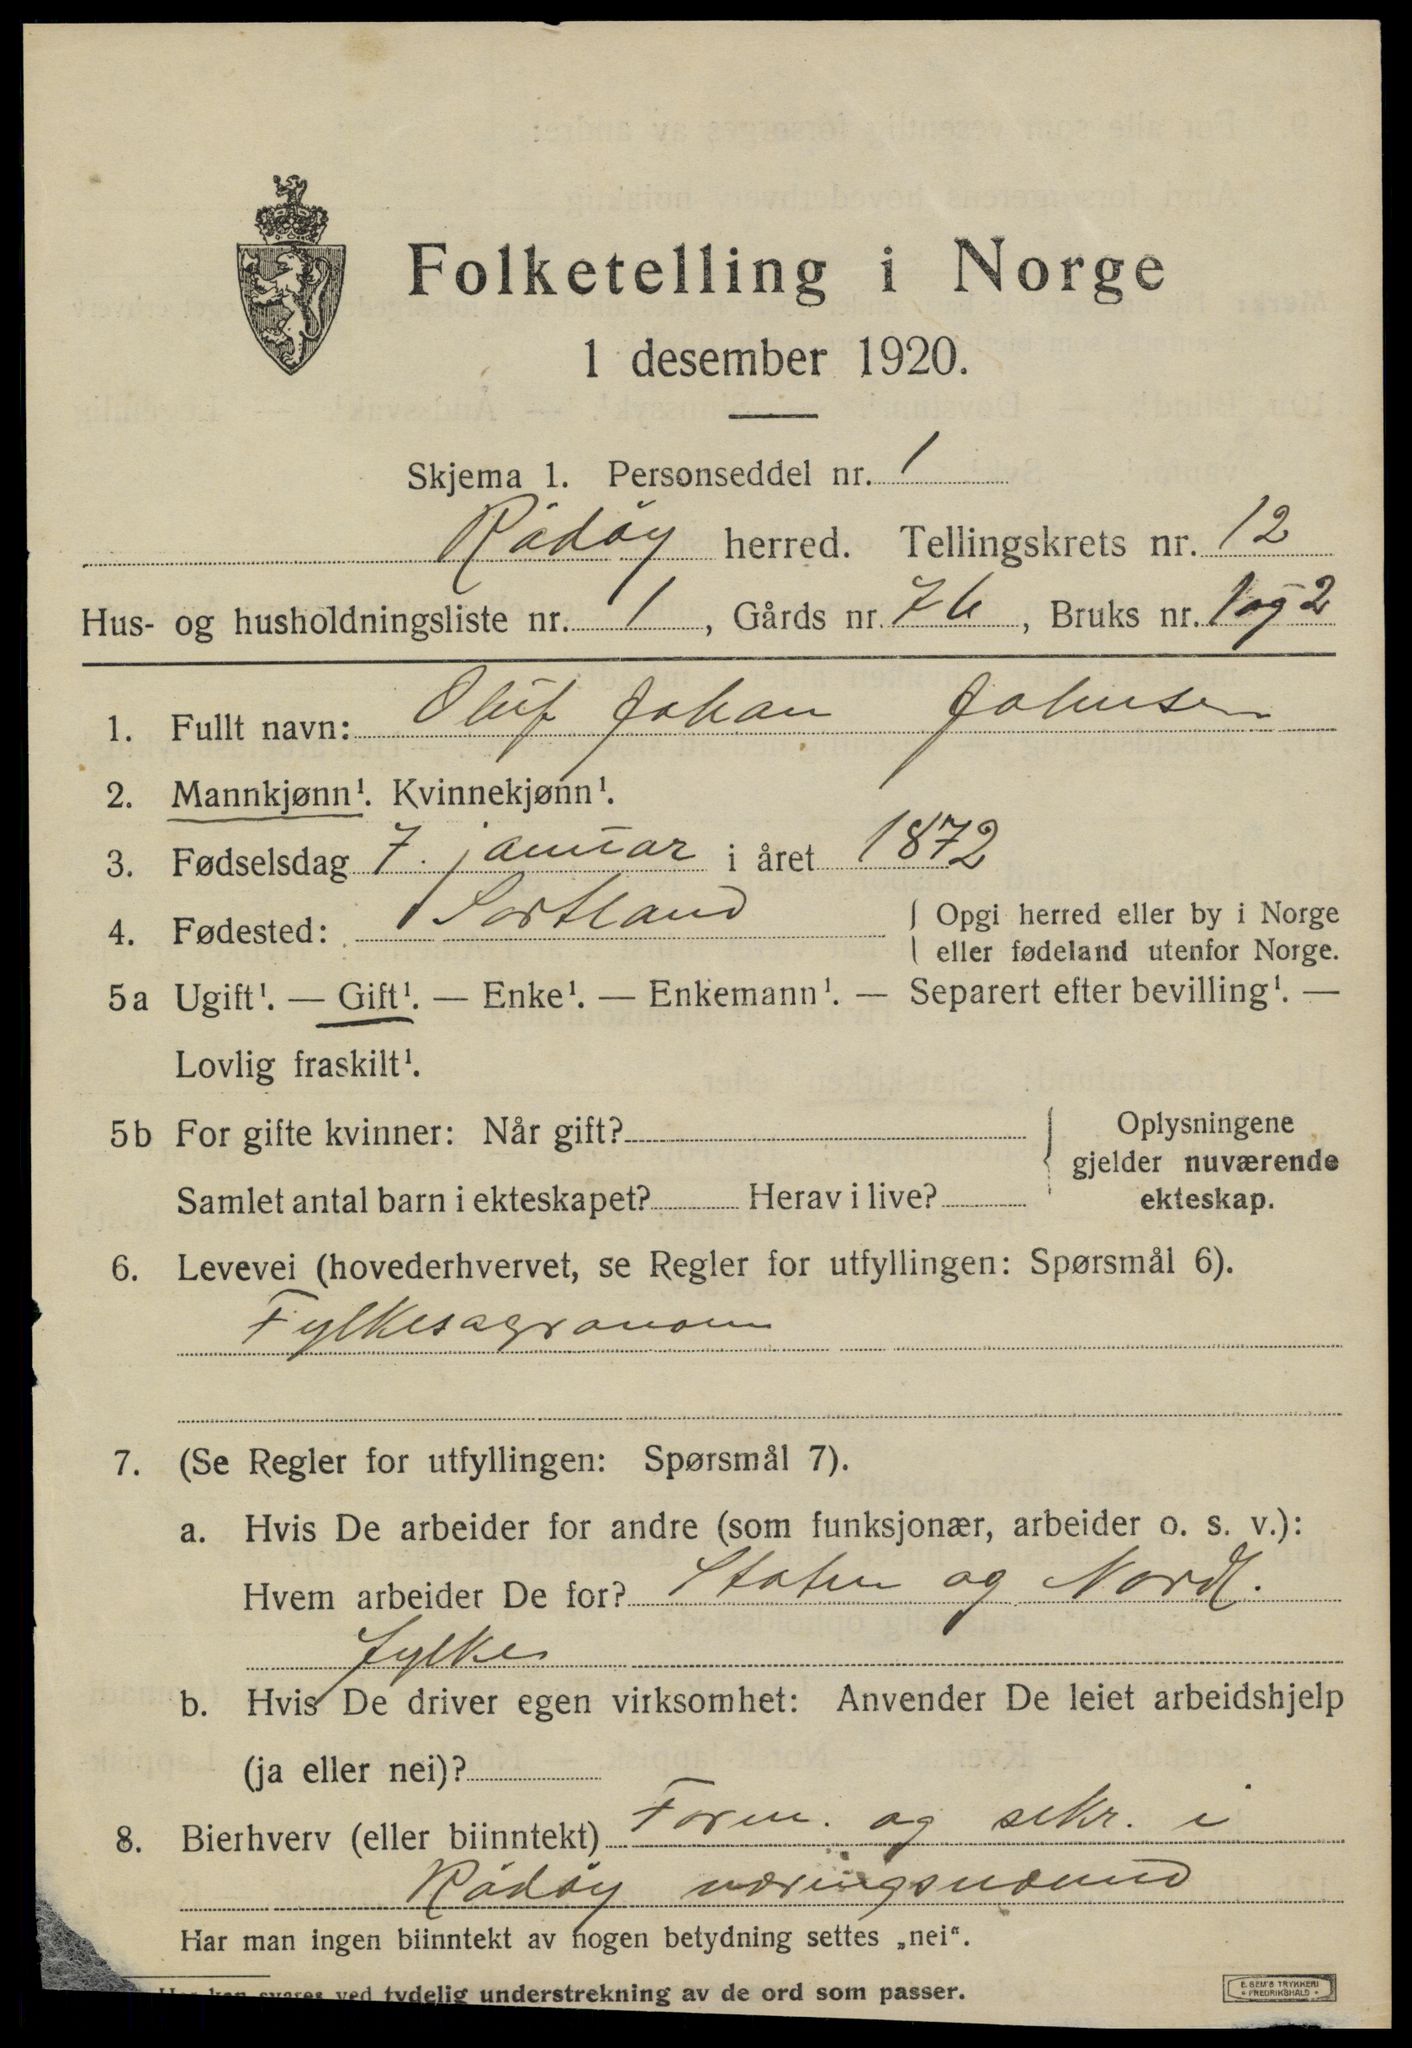 Folketelling i Norge
1 desember 1920.
Skjema 1. Personseddel nr. 1
Rödöy herred. Tellingskrets nr. 12
Hus- og husholdningsliste nr. 1, Gårds nr. 76, Bruks nr. 1 og 2
1. Fullt navn: Oluf Johan Johnsen
2. Mannkjønn¹. Kvinnekjønn¹.
3. Fødselsdag 7. januar i året 1872
4. Fødested: Sortland { Opgi herred eller by i Norge
eller fødeland utenfor Norge.
5a Ugift¹. — Gift¹. — Enke¹. — Enkemann¹. — Separert efter bevilling¹. —
Lovlig fraskilt¹.
5b For gifte kvinner: Når gift? { Oplysningene
gjelder nuværende
Samlet antal barn i ekteskapet? Herav i live? ekteskap.
6. Levevei (hovederhvervet, se Regler for utfyllingen: Spørsmål 6).
Fylkesagronom
7. (Se Regler for utfyllingen: Spørsmål 7).
a. Hvis De arbeider for andre (som funksjonær, arbeider o. s. v.):
Hvem arbeider De for? Staten og Nordl.
fylke
b. Hvis De driver egen virksomhet: Anvender De leiet arbeidshjelp
(ja eller nei)?
8. Bierhverv (eller biinntekt) Form. og sekr. i
Rödöy næringsnevnd
Har man ingen biinntekt av nogen betydning settes „nei“.
svares ved tydelig understrekning av de ord som passer.
E. SEM'S TRYKKERI
FREDRIKSHALD